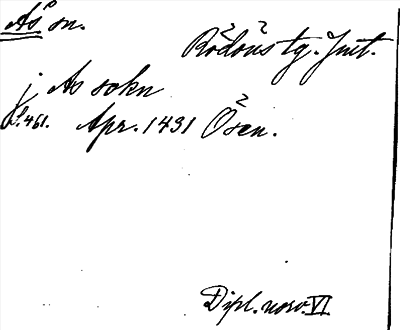 Ås sn.
Rödöns tg. Jmt.
j As sokn
S. 461. Apr. 1431 Ösen.
Dipl. norv. VI